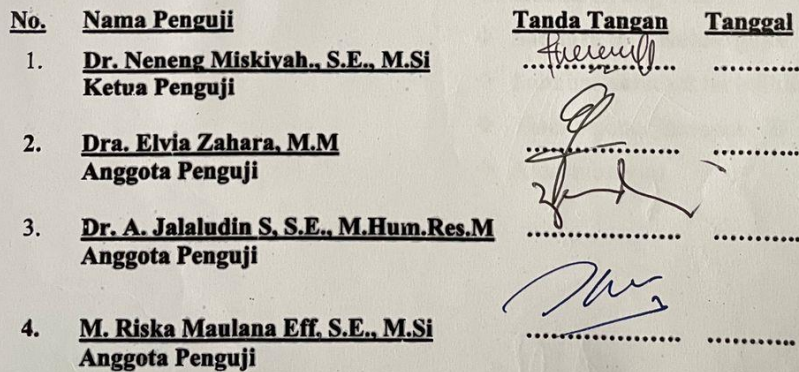 No. Nama Penguji Tanda Tangan Tanggal
1. Dr. Neneng Miskiyah., S.E., M.Si .................. ............
Ketua Penguji
2. Dra. Elvia Zahara, M.M .................. ............
Anggota Penguji
3. Dr. A. Jalaludin S, S.E., M.Hum.Res.M .................. ............
Anggota Penguji
4. M. Riska Maulana Eff, S.E., M.Si .................. ............
Anggota Penguji